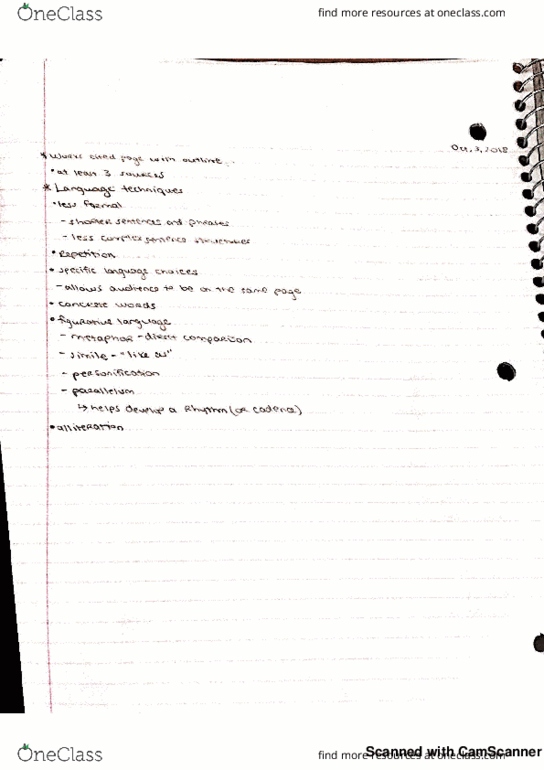 OneClass
find more resources at oneclass.com
Oct, 3, 2018
* Works cited page with outline
• at least 3 sources
* Language techniques
• less formal
- shorter sentences and phrases
- less complex sentence structures
• Repetition
• specific language choices
- allows audience to be on the same page
• concrete words
• figurative language
- metaphor - direct comparison
- simile - "like as"
- personification
- parallelism
↳ helps develop a Rhythm (or cadence)
• alliteration
OneClass
find more resources at oneclass.com
Scanned with CamScanner